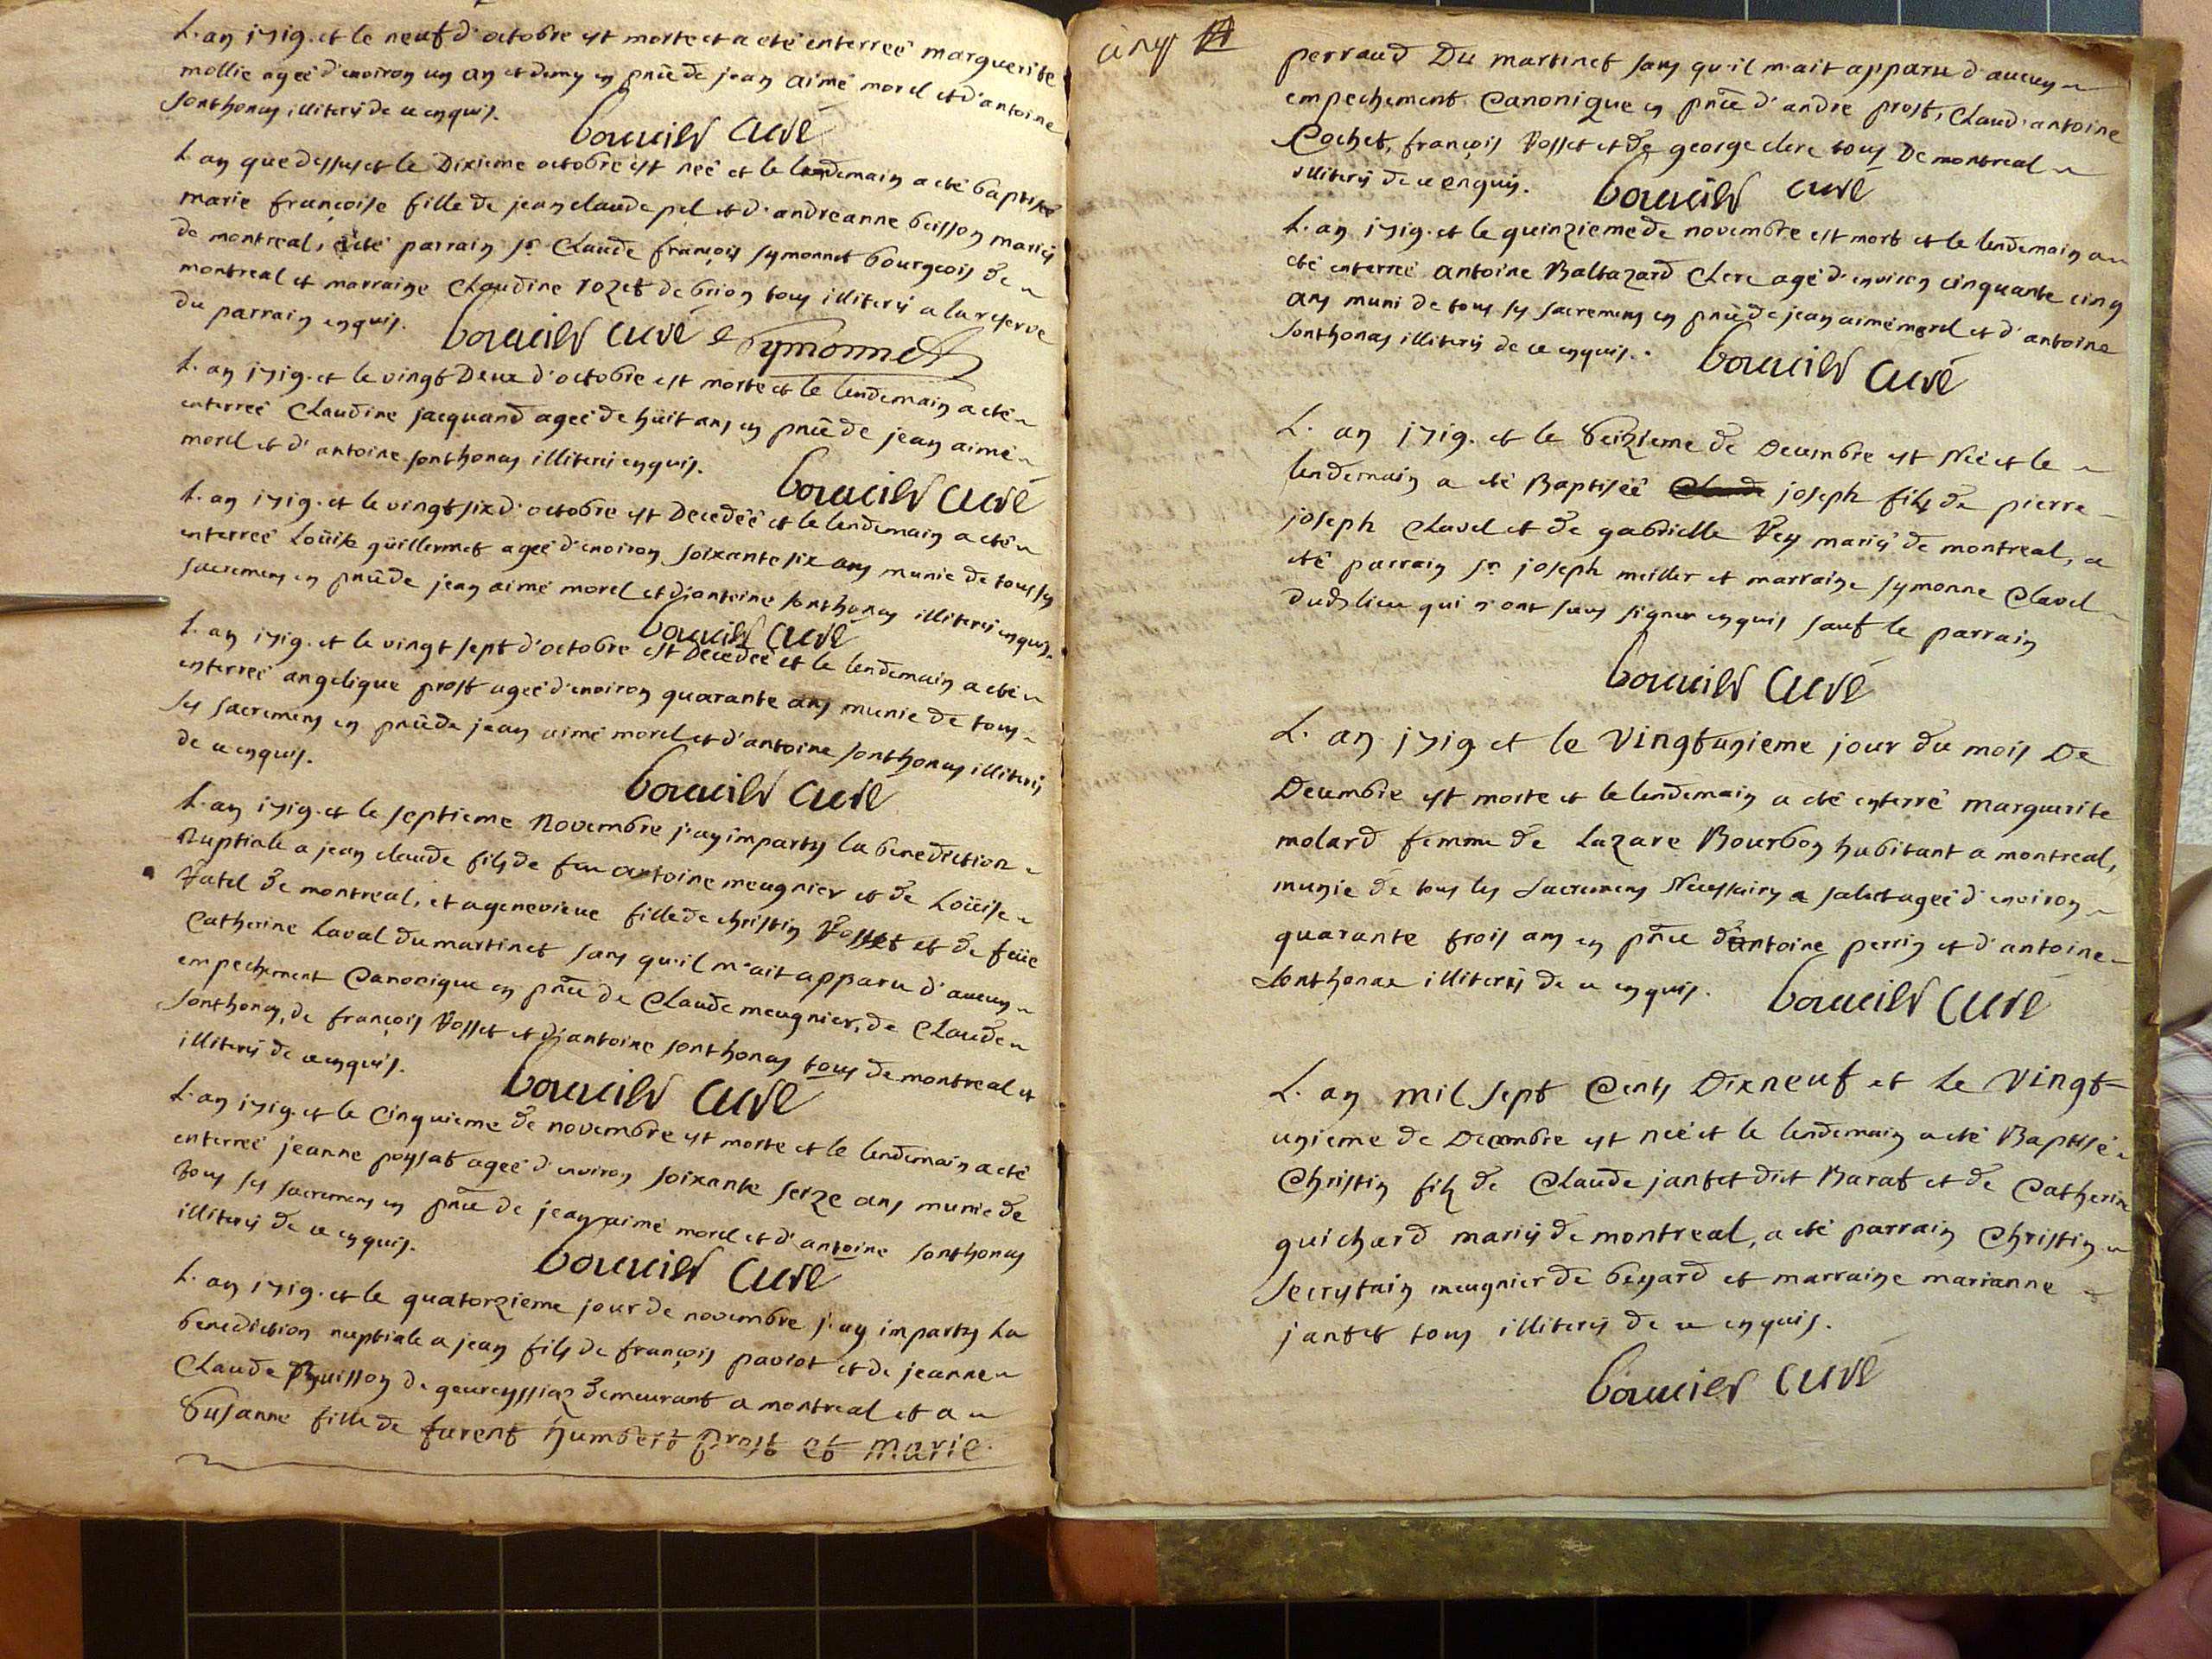 L'an 1719. et le neuf d'octobre est morte et a eté enterreé marguerite
mollie ageé d'environ un an et demy en pñce de jean aimé morel et d'antoine
sonthonas illiterés de ce enquis.
bouuier curé
L'an que dessus et le Dixieme octobre est neé et le lendemain a eté baptiseé
marie françoise fille de jean claude pel et d'andreanne buisson mariés
de montreal, a eté parrain sr. Claude françois symonnet bourgeois de
montreal et marraine Claudine rozet de brion tous illiterés a la reserve
du parrain enquis.
bouuier curé Symonnet
L'an 1719. et le vingt Deux d'octobre est morte et le lendemain a eté
enterreé Claudine jacquand ageé de huit ans en pñce de jean aimé
morel et d'antoine sonthonas illiterés enquis.
bouuier curé
L'an 1719. et le vingt six d'octobre est Decedeé et le lendemain a eté
enterreé Loüise guillermet ageé d'environ soixante six ans munie de tous ses
sacremens en pñce de jean aimé morel et d'antoine sonthonas illiterés enquis.
bouuier curé
L'an 1719. et le vingt sept d'octobre est Decedeé et le lendemain a eté
enterreé angelique prost ageé d'environ quarante ans munie de tous
ses sacremens en pñce de jean aimé morel et d'antoine sonthonas illiterés
de ce enquis.
bouuier curé
L'an 1719. et le septieme Novembre j'ay imparty la benediction
Nuptiale a jean claude fils de feu antoine meugnier et de Loüise
Vatel de montreal, et a genevieve fille de christin Vosset et de feüe
Catherine Laval du martinet sans qu'il m'ait apparu d'aucun
empechement Canonique en pñce de Claude meugnier, de Claude
sonthonas, de françois Vosset et d'antoine sonthonas tous de montreal et
illiterés de ce enquis.
bouuier curé
L'an 1719. et le Cinquieme de novembre est morte et le lendemain a eté
enterreé jeanne poysat ageé d'environ soixante seize ans munie de
tous ses sacremens en pñce de jean aimé morel et d'antoine sonthonas
illiterés de ce enquis.
bouuier curé
L'an 1719. et le quatorzieme jour de novembre j'ay imparty la
benediction nuptiale a jean fils de françois paviot et de jeanne
Claude Buisson de geureyssiaz demeurant a montreal et a
Susanne fille de furent humbert prost et marie
cinq
perraud Du martinet sans qu'il m'ait apparu d'aucun
empechement Canonique en pñce d'andre prost, Claud'antoine
Cochet, françois Vosset et de george clerc tous De montreal
illiterés de ce enquis.
bouuier curé
L'an 1719. et le quinzieme de novembre est mort et le lendemain a
eté enterreé antoine Baltazard Clerc agé d'environ cinquante cinq
ans muni de tous ses sacremens en pñce de jean aimé morel et d'antoine
sonthonas illiterés de ce enquis.
bouuier curé
L'an 1719. et le Seizieme de Decembre est Neé et le
lendemain a eté Baptiseé Claude joseph fils de pierre
joseph Clavel et de gabrielle Vey mariés de montreal, a
eté parrain sr. joseph meiller et marraine symonne Clavel
dud. lieu qui n'ont sceu signer enquis sauf le parrain
bouuier curé
L'an 1719 et le Vingtunieme jour du mois De
Decembre est morte et le lendemain a eté enterré marguerite
molard femme de Lazare Bourbon habitant a montreal,
munie de tous les sacremens Necessaires a salut ageé d'environ
quarante trois ans en pñce d'antoine perrin et d'antoine
sonthonas illiterés de ce enquis.
bouuier curé
L'an mil sept Cents Dixneuf et Le Vingt
unieme de Decembre est né et le lendemain a eté Baptisé
Christin fils de Claude jantet dit Barat et de Catherine
guichard mariés de montreal, a eté parrain Christin
secrystain meugnier de beyard et marraine marianne
jantet tous illiterés de ce enquis.
bouuier curé